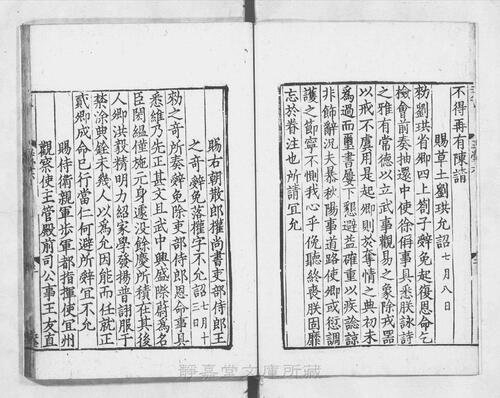 不得再有陳請
賜草土劉珙允詔七月八日
勑劉珙省卿四上劄子辭免起復恩命乞
檢會前奏抽還中使徐俌事具悉朕詠詩
之雅有常德以立武事觀易之象除戎器
以戒不虞用是起卿則於奪情之典初未
爲過而璽書屢下懇避益確重以疾諗諒
非飾辭況夫暴秋陽事道路使卿或愆調
護之節寧不惻我心乎俛聽終喪朕固靡
忘於眷注也所請宜允
賜右朝散郎權尚書吏部侍郎王
之奇辭免落權字不允詔七月十三日
勑之奇所奏辭免除吏部侍郎恩命事具
悉維乃先正其文且武中興盛際蔚爲名
臣閱緼僅施元身遽没餘慶所積在其後
人卿洪毅精明力紹家學發揚晋詡服于
禁涂典銓未幾人以爲允因能而任就正
貳卿成命已行當仁何避所辭宜不允
賜侍衛親軍步軍都指揮使宜州
觀察使主管殿前司公事王友直
靜嘉堂文庫所藏